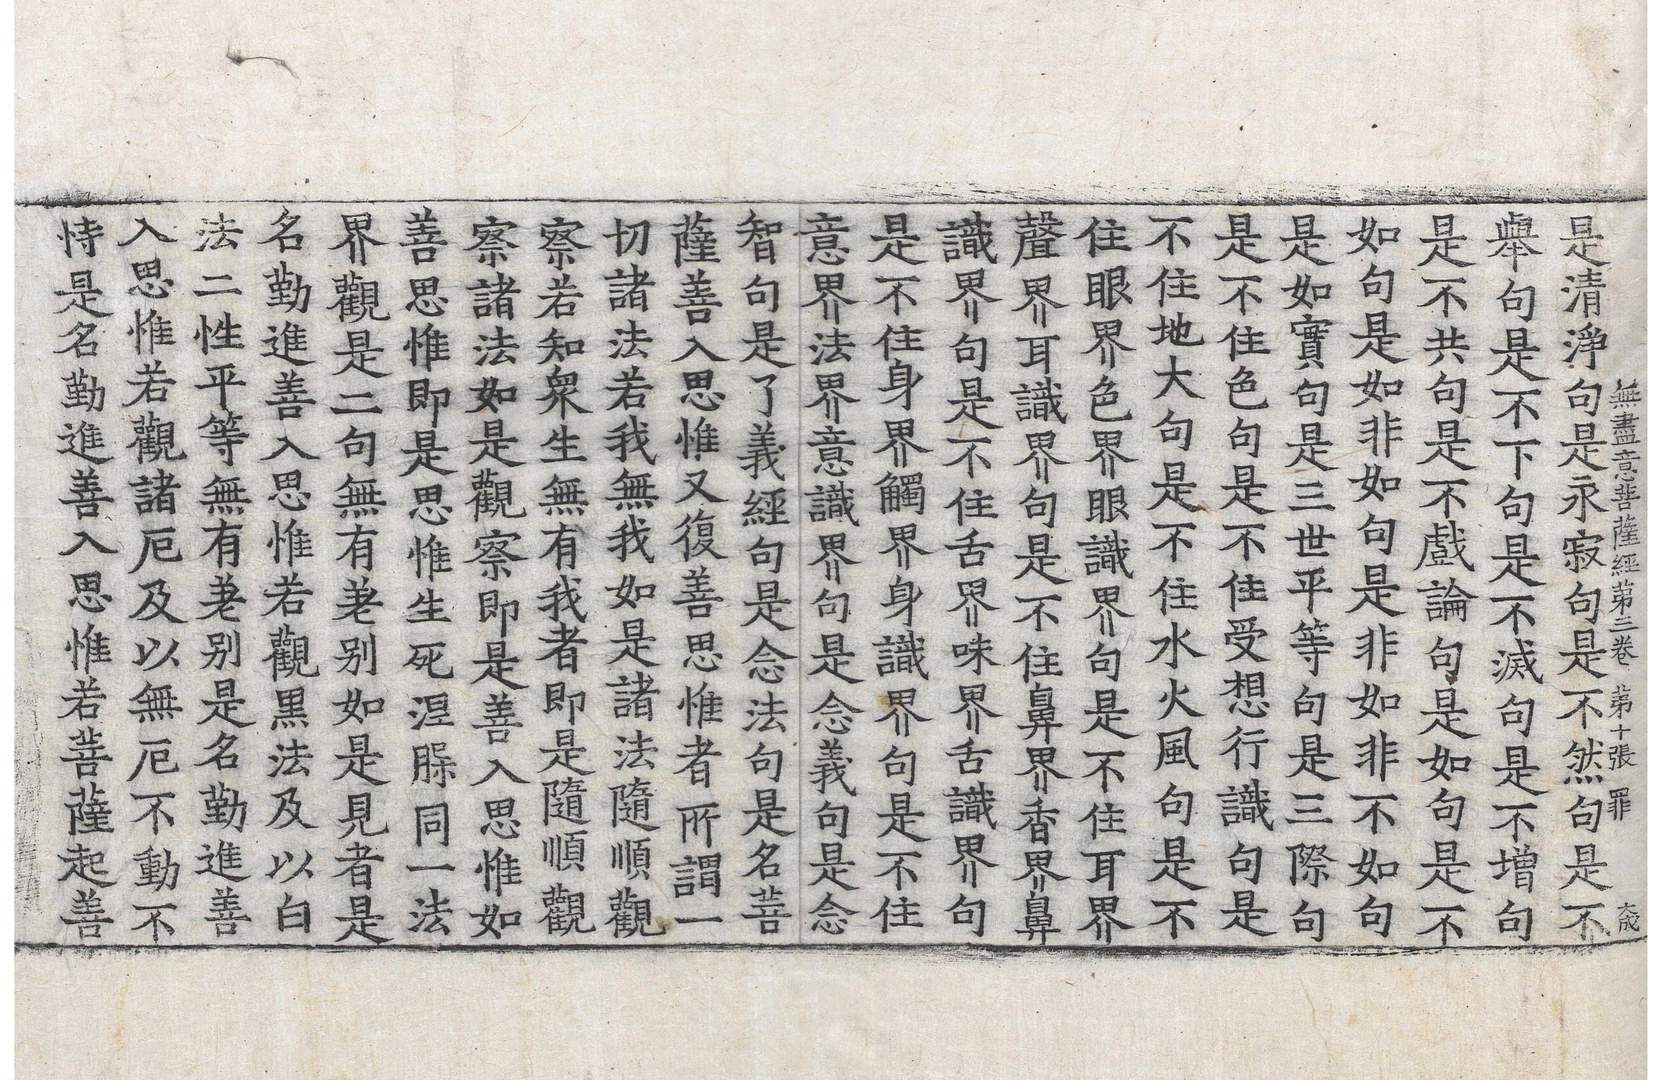 無盡意菩薩經第三卷 第十張 罪 大成
是清淨句是永寂句是不然句是不
舉句是不下句是不滅句是不增句
是不共句是不戲論句是如句是不
如句是如非如句是非如非不如句
是如實句是三世平等句是三際句
是不住色句是不住受想行識句是
不住地大句是不住水火風句是不
住眼界色界眼識界句是不住耳界
聲界耳識界句是不住鼻界香界鼻
識界句是不住舌界味界舌識界句
是不住身界觸界身識界句是不住
意界法界意識界句是念義句是念
智句是了義經句是念法句是名菩
薩善入思惟又復善思惟者所謂一
切諸法若我無我如是諸法隨順觀
察若知衆生無有我者即是隨順觀
察諸法如是觀察即是善入思惟如
善思惟即是思惟生死涅槃同一法
界觀是二句無有差别如是見者是
名勤進善入思惟若觀黑法及以白
法二性平等無有差别是名勤進善
入思惟若觀諸厄及以無厄不動不
恃是名勤進善入思惟若菩薩起善